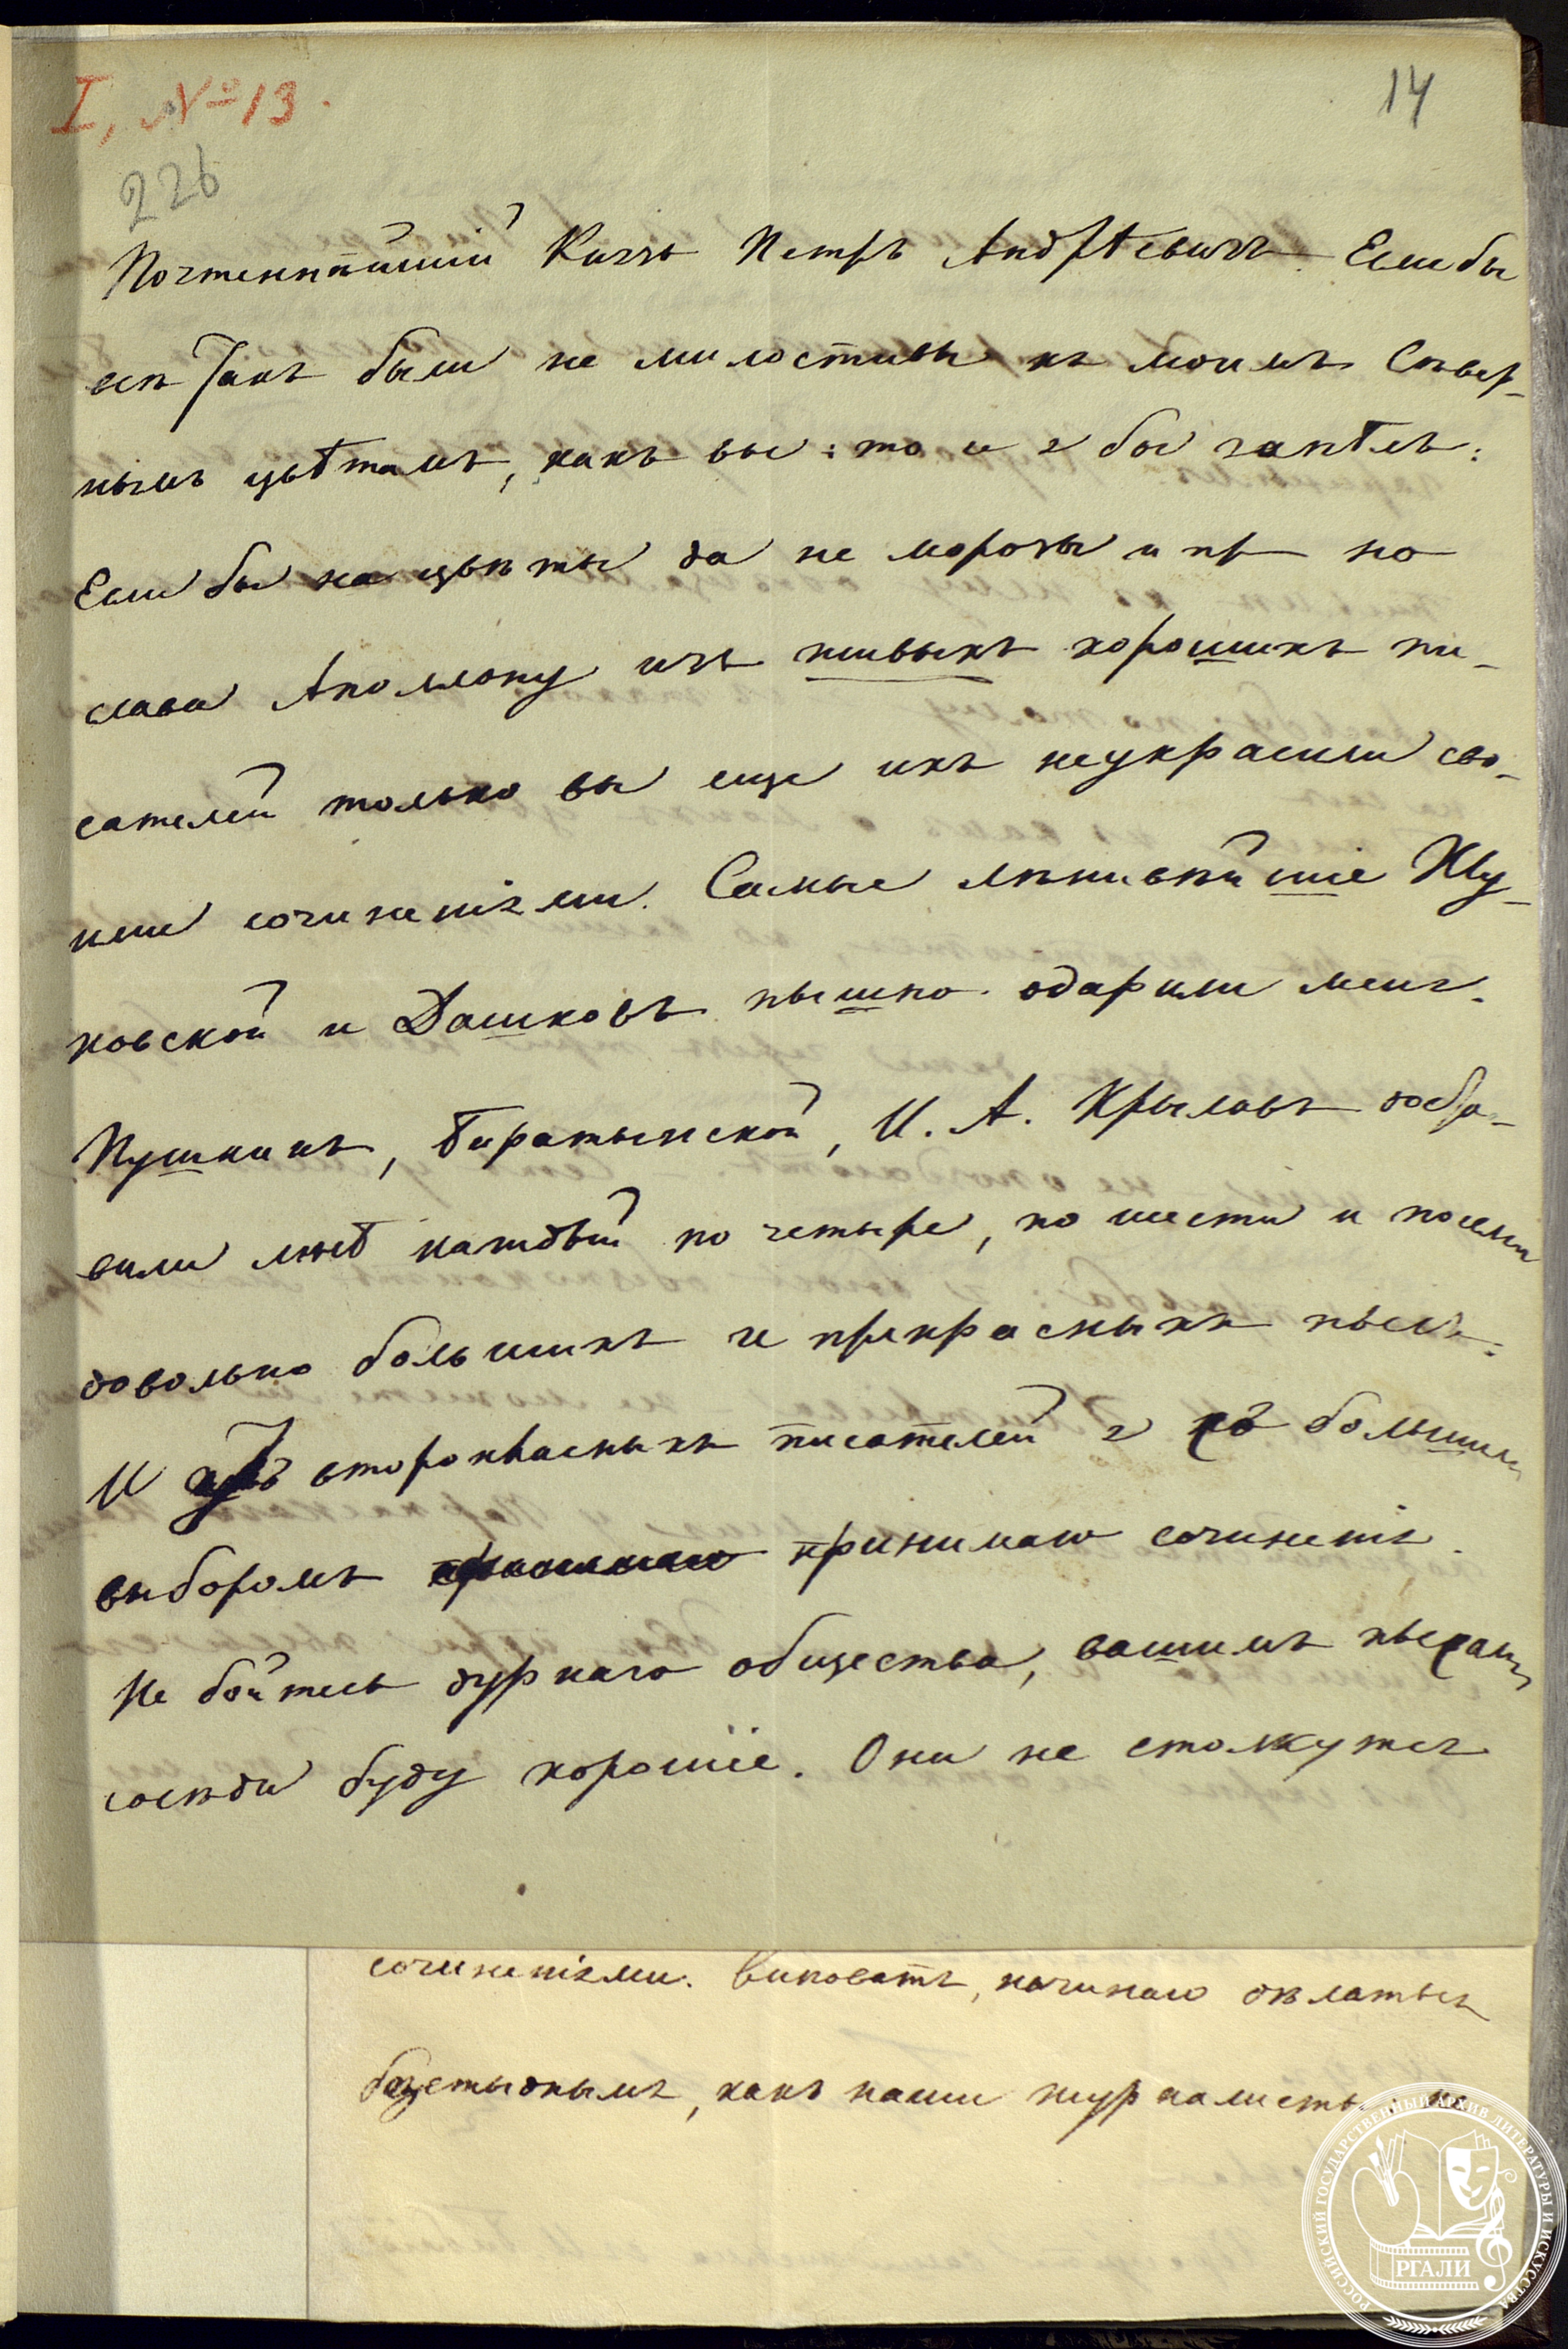 I, №13.
14
226
Почтеннѣйшій Князь Петръ Андрѣевичь. Если бы
всѣ такъ были не милостивы къ моимъ Сѣвер-
нымъ цвѣтамъ, какъ вы: то и я бы запѣлъ:
Если бы на цвѣты да не морозы и пр но
слава Апполону изъ живыхъ хорошихъ пи-
сателей только вы еще ихъ неукрасили сво-
ими сочиненіями. Самые лѣнивѣйшіе Жу-
ковской и Дашковъ пышно одарили меня.
Пушкинъ, Баратынской, И. А. Крыловъ доста-
вили мнѣ каждый по четыре, по шести и посеми
довольно большихъ и прекрасныхъ пьесъ.
И у второкласныхъ писателей я съ большимъ
выборомъ принимаю сочиненія.
Не бойтесь дурнаго общества, вашимъ пьесамъ
сосѣди буду хорошіе. Они не столкутся
сочиненіями. Виноватъ, начинаю дѣлаться
безстыднымъ, какъ наши журналисты, но
РОССИЙСКИЙ ГОСУДАРСТВЕННЫЙ АРХИВ ЛИТЕРАТУРЫ И ИСКУССТВА
РГАЛИ